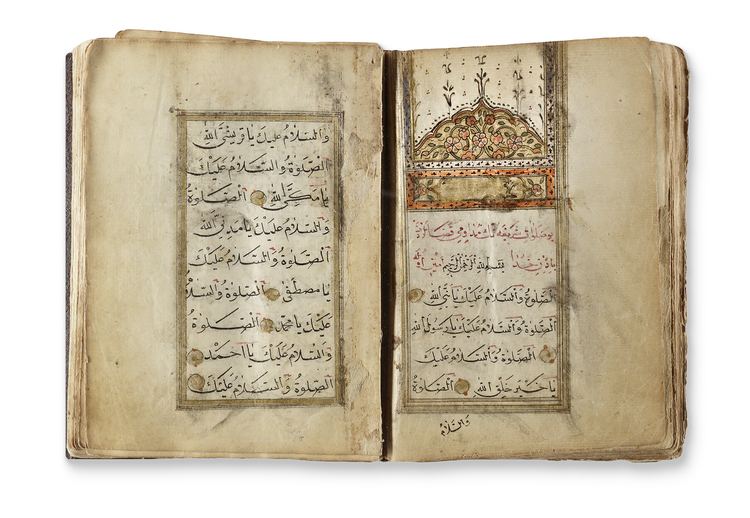 بو صلوات شريفه
بسم الله الرحمن الرحيم
الصلوة والسلام عليك يا نبي الله
الصلوة والسلام عليك يا رسول الله
الصلوة والسلام عليك
يا خير خلق الله الصلوة
والسلام
والسلام عليك يا قريشي الله
الصلوة والسلام عليك
يا مكي الله الصلوة
والسلام عليك يا مدني الله
الصلوة والسلام عليك
يا مصطفى الصلوة والسلام
عليك يا محمد الصلوة
والسلام عليك يا احمد
الصلوة والسلام عليك